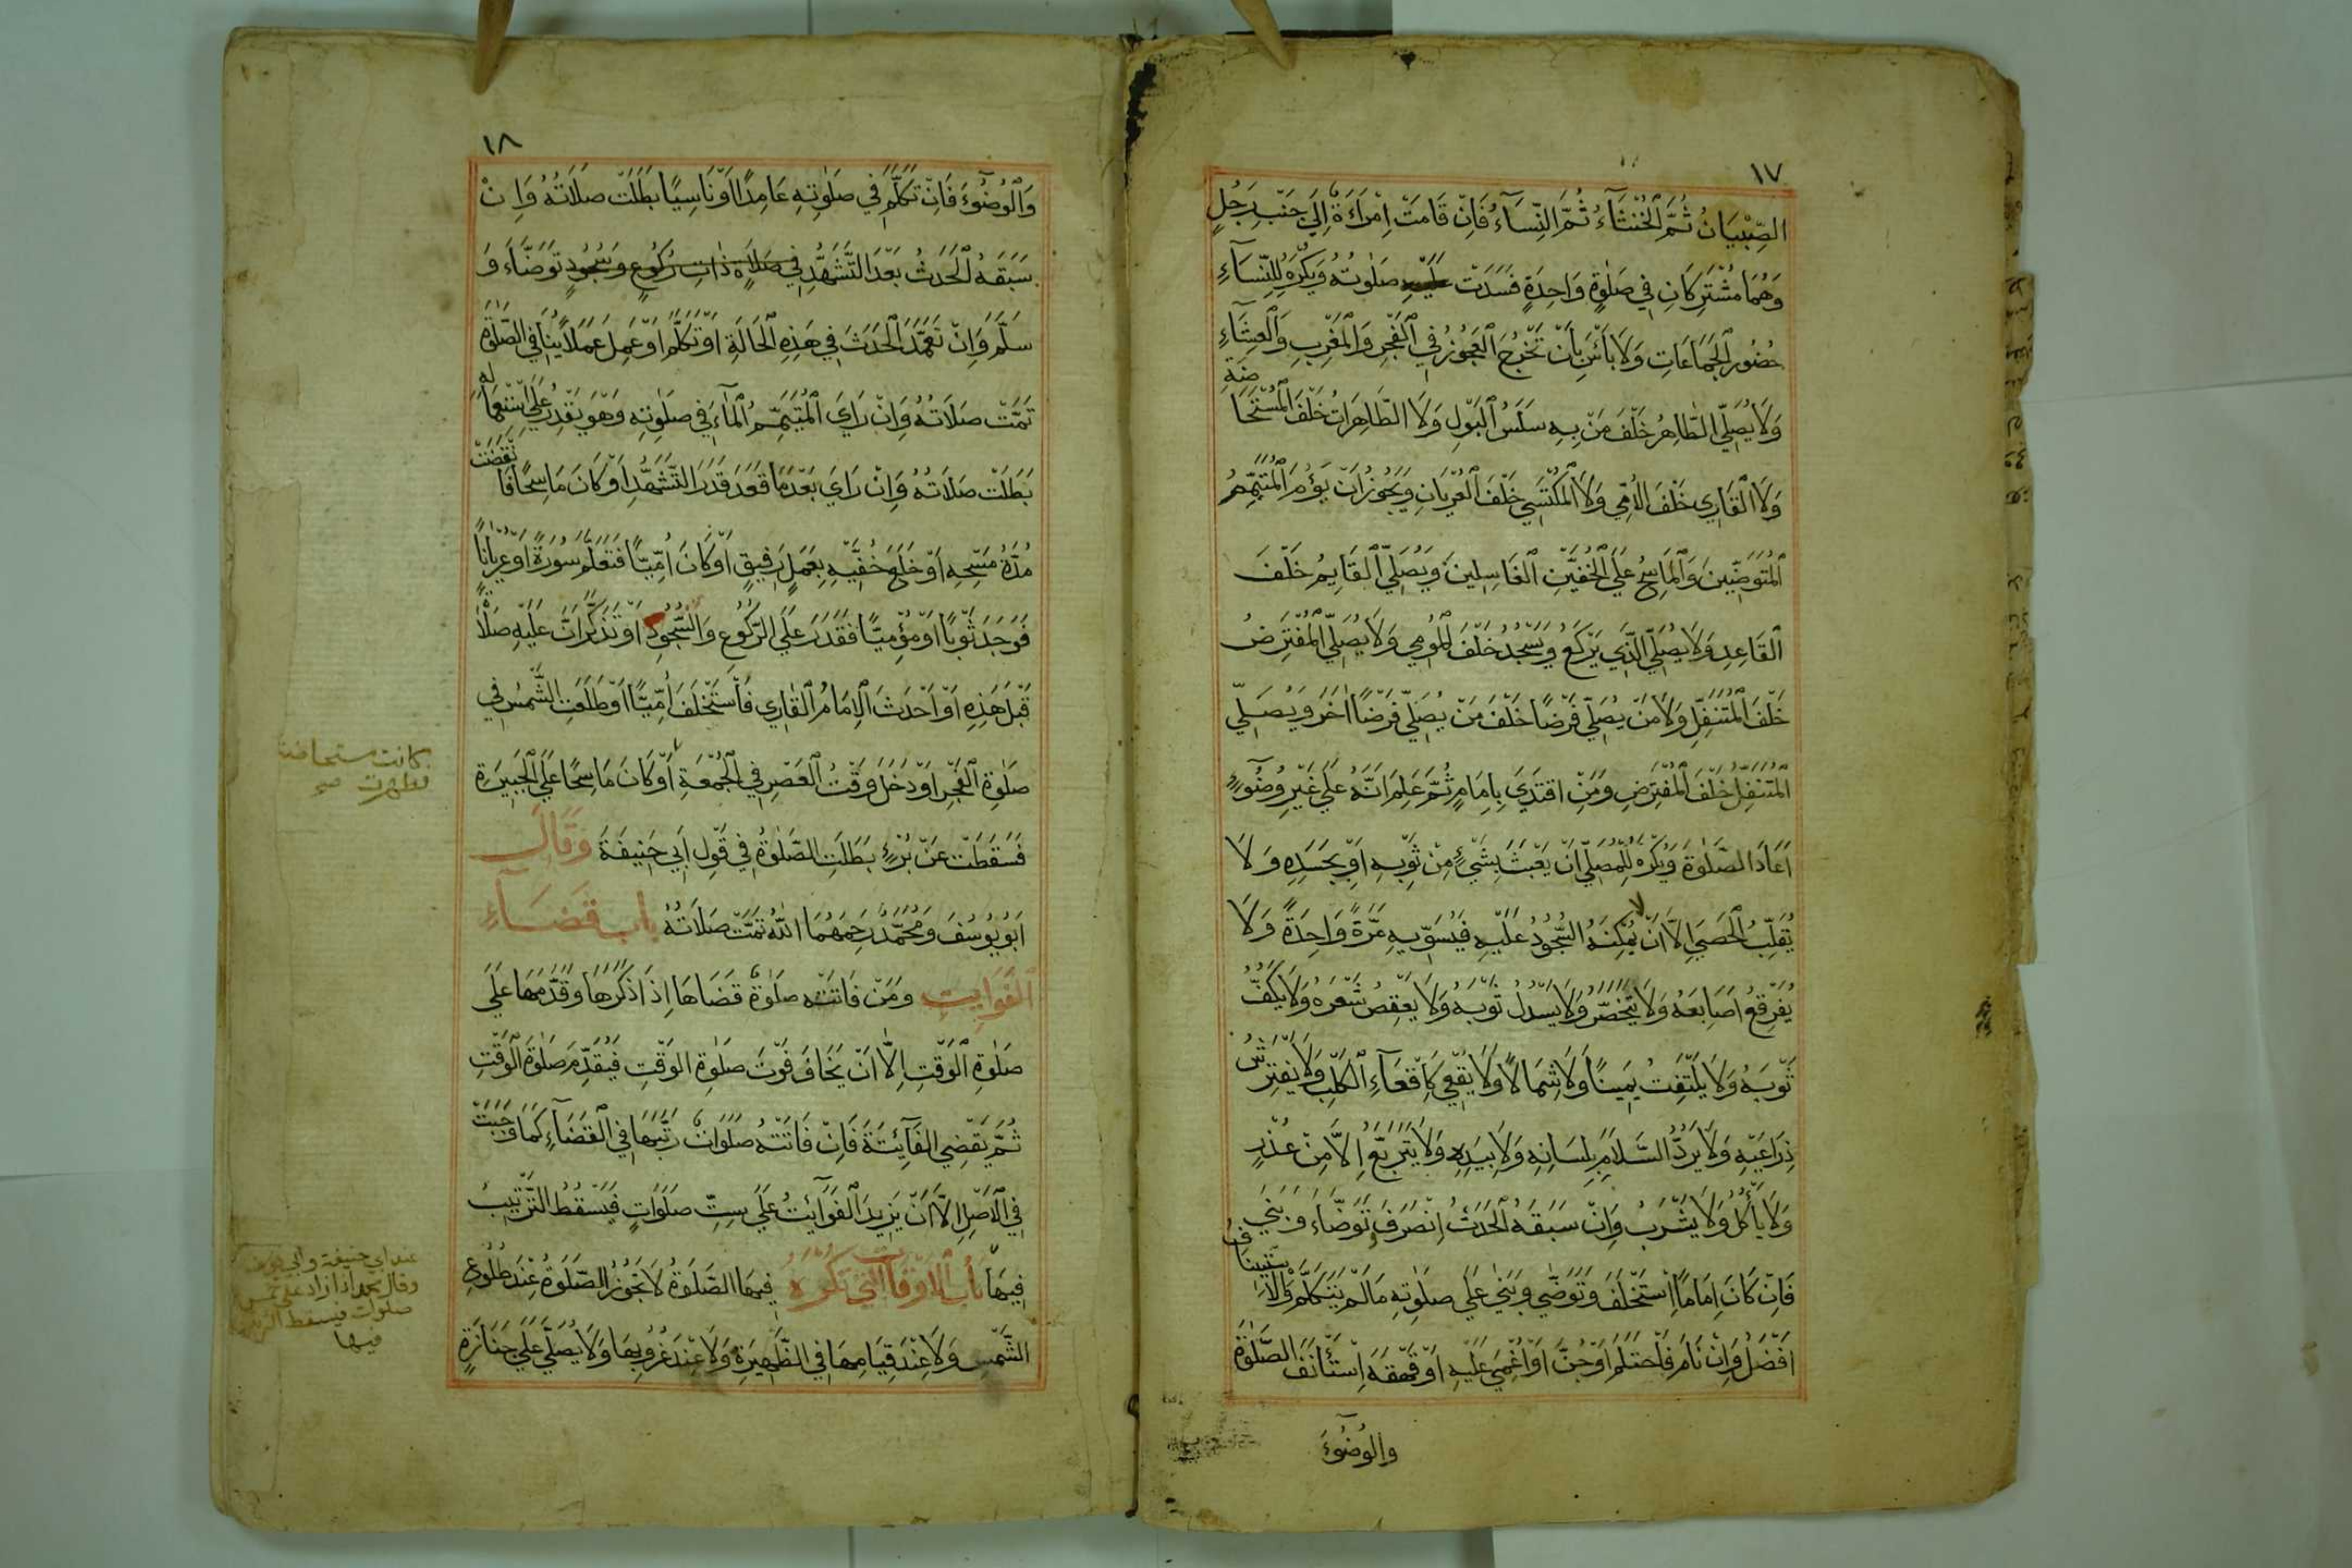 ١٧
الصِّبْيَانُ ثُمَّ الْخُنْثَاءُ ثُمَّ النِّسَاءُ فَاِنْ قَامَتْ اِمْرَاءَةٌ اِلَى جَنْبِ رَجُلٍ
وَهُمَا مُشْتَرِكَانِ فِي صَلٰوةٍ وَاحِدَةٍ فَسَدَتْ صَلٰوتُهُ وَيُكْرَهُ لِلنِّسَاءِ
حُضُورُ الْجَمَاعَاتِ وَلَا بَأْسَ بِأَنْ تَخْرُجَ الْعَجُوزُ فِي الْفَجْرِ وَالْمَغْرِبِ وَالْعِشَاءِ
وَلَا يُصَلِّي الطَّاهِرُ خَلْفَ مَنْ بِهِ سَلَسُ الْبَوْلِ وَلَا الطَّاهِرَاتُ خَلْفَ الْمُسْتَحَاضَةِ
وَلَا الْقَارِي خَلْفَ الْاُمِّي وَلَا الْمُكْتَسِي خَلْفَ الْعُرْيَانِ وَيَجُوزُ اَنْ يَؤُمَّ الْمُتَيَمِّمُ
الْمُتَوَضِّيِينَ وَالْمَاسِحُ عَلَى الْخُفَّيْنِ الْغَاسِلِينَ وَيُصَلِّي الْقَايِمُ خَلْفَ
الْقَاعِدِ وَلَا يُصَلِّي الَّذِي يَرْكَعُ وَيَسْجُدُ خَلْفَ الْمُومِي وَلَا يُصَلِّي الْمُفْتَرِضُ
خَلْفَ الْمُتَنَفِّلِ وَلَا مَنْ يُصَلِّي فَرْضًا خَلْفَ مَنْ يُصَلِّي فَرْضًا اٰخَرَ وَيُصَلِّي
الْمُتَنَفِّلُ خَلْفَ الْمُفْتَرِضِ وَمَنِ اقْتَدَى بِاِمَامٍ ثُمَّ عَلِمَ اَنَّهُ عَلَى غَيْرِ وُضُوءٍ
اَعَادَ الصَّلٰوةَ وَيُكْرَهُ لِلْمُصَلِّي اَنْ يَعْبَثَ بِشَيْءٍ مِنْ ثَوْبِهِ اَوْ بِجَسَدِهِ وَلَا
يُقَلِّبُ الْحَصَى اِلَّا اَنْ لَا يُمْكِنَهُ السُّجُودُ عَلَيْهِ فَيُسَوِّيهِ مَرَّةً وَاحِدَةً وَلَا
يُفَرْقِعُ اَصَابِعَهُ وَلَا يَتَخَصَّرُ وَلَا يَسْدُلُ ثَوْبَهُ وَلَا يَعْقِصُ شَعْرَهُ وَلَا يَكُفُّ
ثَوْبَهُ وَلَا يَلْتَفِتُ يَمِينًا وَلَا شِمَالًا وَلَا يُقْعِي كَاِقْعَاءِ الْكَلْبِ وَلَا يَفْتَرِشُ
ذِرَاعَيْهِ وَلَا يَرُدُّ السَّلَامَ بِلِسَانِهِ وَلَا بِيَدِهِ وَلَا يَتَرَبَّعُ اِلَّا مِنْ عُذْرٍ
وَلَا يَأْكُلُ وَلَا يَشْرَبُ وَاِنْ سَبَقَهُ الْحَدَثُ اِنْصَرَفَ وَتَوَضَّاءَ وَبَنَى
فَاِنْ كَانَ اِمَامًا اِسْتَخْلَفَ وَتَوَضَّى وَبَنَى عَلَى صَلٰوتِهِ مَا لَمْ يَتَكَلَّمْ وَالْاِسْتِينَافُ
اَفْضَلُ وَاِنْ نَامَ فَاحْتَلَمَ اَوْ جُنَّ اَوْ اُغْمِيَ عَلَيْهِ اَوْ قَهْقَهَ اِسْتَأْنَفَ الصَّلٰوةَ
والوُضُوءَ
١٨
وَالْوُضُوءَ فَاِنْ تَكَلَّمَ فِي صَلٰوتِهِ عَامِدًا اَوْ نَاسِيًا بَطَلَتْ صَلَاتُهُ وَاِنْ
سَبَقَهُ الْحَدَثُ بَعْدَ التَّشَهُّدِ فِي صَلَاةٍ ذَاتِ رُكُوعٍ وَسُجُودٍ تَوَضَّاءَ وَ
سَلَّمَ وَاِنْ تَعَمَّدَ الْحَدَثَ فِي هٰذِهِ الْحَالَةِ اَوْ تَكَلَّمَ اَوْ عَمِلَ عَمَلًا يُنَافِي الصَّلٰوةَ
تَمَّتْ صَلَاتُهُ وَاِنْ رَاىَ الْمُتَيَمِّمُ الْمَاءَ فِي صَلٰوتِهِ وَهُوَ يَقْدِرُ عَلَى اسْتِعْمَالِهِ
بَطَلَتْ صَلَاتُهُ وَاِنْ رَاىَ بَعْدَ مَا قَعَدَ قَدْرَ التَّشَهُّدِ اَوْ كَانَ مَاسِحًا فَانْقَضَتْ
مُدَّةُ مَسْحِهِ اَوْ خَلَعَ خُفَّيْهِ بِعَمَلٍ رَفِيقٍ اَوْ كَانَ اُمِّيًّا فَتَعَلَّمَ سُورَةً اَوْ عُرْيَانًا
فَوَجَدَ ثَوْبًا اَوْ مُؤْمِيًّا فَقَدَرَ عَلَى الرُّكُوعِ وَالسُّجُودِ اَوْ تَذَكَّرَ اَنَّ عَلَيْهِ صَلَاةً
قَبْلَ هٰذِهِ اَوْ اَحْدَثَ الْاِمَامُ الْقَارِي فَاسْتَخْلَفَ اُمِّيًّا اَوْ طَلَعَتِ الشَّمْسُ فِي
صَلٰوةِ الْفَجْرِ اَوْ دَخَلَ وَقْتُ الْعَصْرِ فِي الْجُمْعَةِ اَوْ كَانَ مَاسِحًا عَلَى الْجَبِيرَةِ
كانت مستحاضة
فطهرت صح
فَسَقَطَتْ عَنْ بُرْءٍ بَطَلَتِ الصَّلٰوةُ فِي قَوْلِ اَبِي حَنِيفَةَ وَقَالَ
اَبُو يُوسُفَ وَمُحَمَّدٌ رَحِمَهُمَا اللّٰهُ تَمَّتْ صَلَاتُهُ بَابُ قَضَاءِ
الْفَوَايِتِ وَمَنْ فَاتَتْهُ صَلٰوةٌ قَضَاهَا اِذَا ذَكَرَهَا وَقَدَّمَهَا عَلَى
صَلٰوةِ الْوَقْتِ اِلَّا اَنْ يَخَافَ فَوْتَ صَلٰوةِ الْوَقْتِ فَيُقَدِّمَ صَلٰوةَ الْوَقْتِ
ثُمَّ يَقْضِي الْفَائِتَةَ فَاِنْ فَاتَتْهُ صَلَوَاتٌ رَتَّبَهَا فِي الْقَضَاءِ كَمَا وَجَبَتْ
فِي الْاَصْلِ اِلَّا اَنْ يَزِيدَ الْفَوَائِتُ عَلَى سِتِّ صَلَوَاتٍ فَيَسْقُطُ التَّرْتِيبُ
فِيهَا بَابُ الْاَوْقَاتِ الَّتِي تُكْرَهُ فِيهَا الصَّلَوةُ لَا تَجُوزُ الصَّلَوةُ عِنْدَ طُلُوعِ
الشَّمْسِ وَلَا عِنْدَ قِيَامِهَا فِي الظَّهِيرَةِ وَلَا عِنْدَ غُرُوبِهَا وَلَا يُصَلِّي عَلَى جَنَازَةٍ
عند ابي حنيفة وابي يوسف
وقال محمد اذا زاد على خمس
صلوات فيسقط الترتيب
فيها